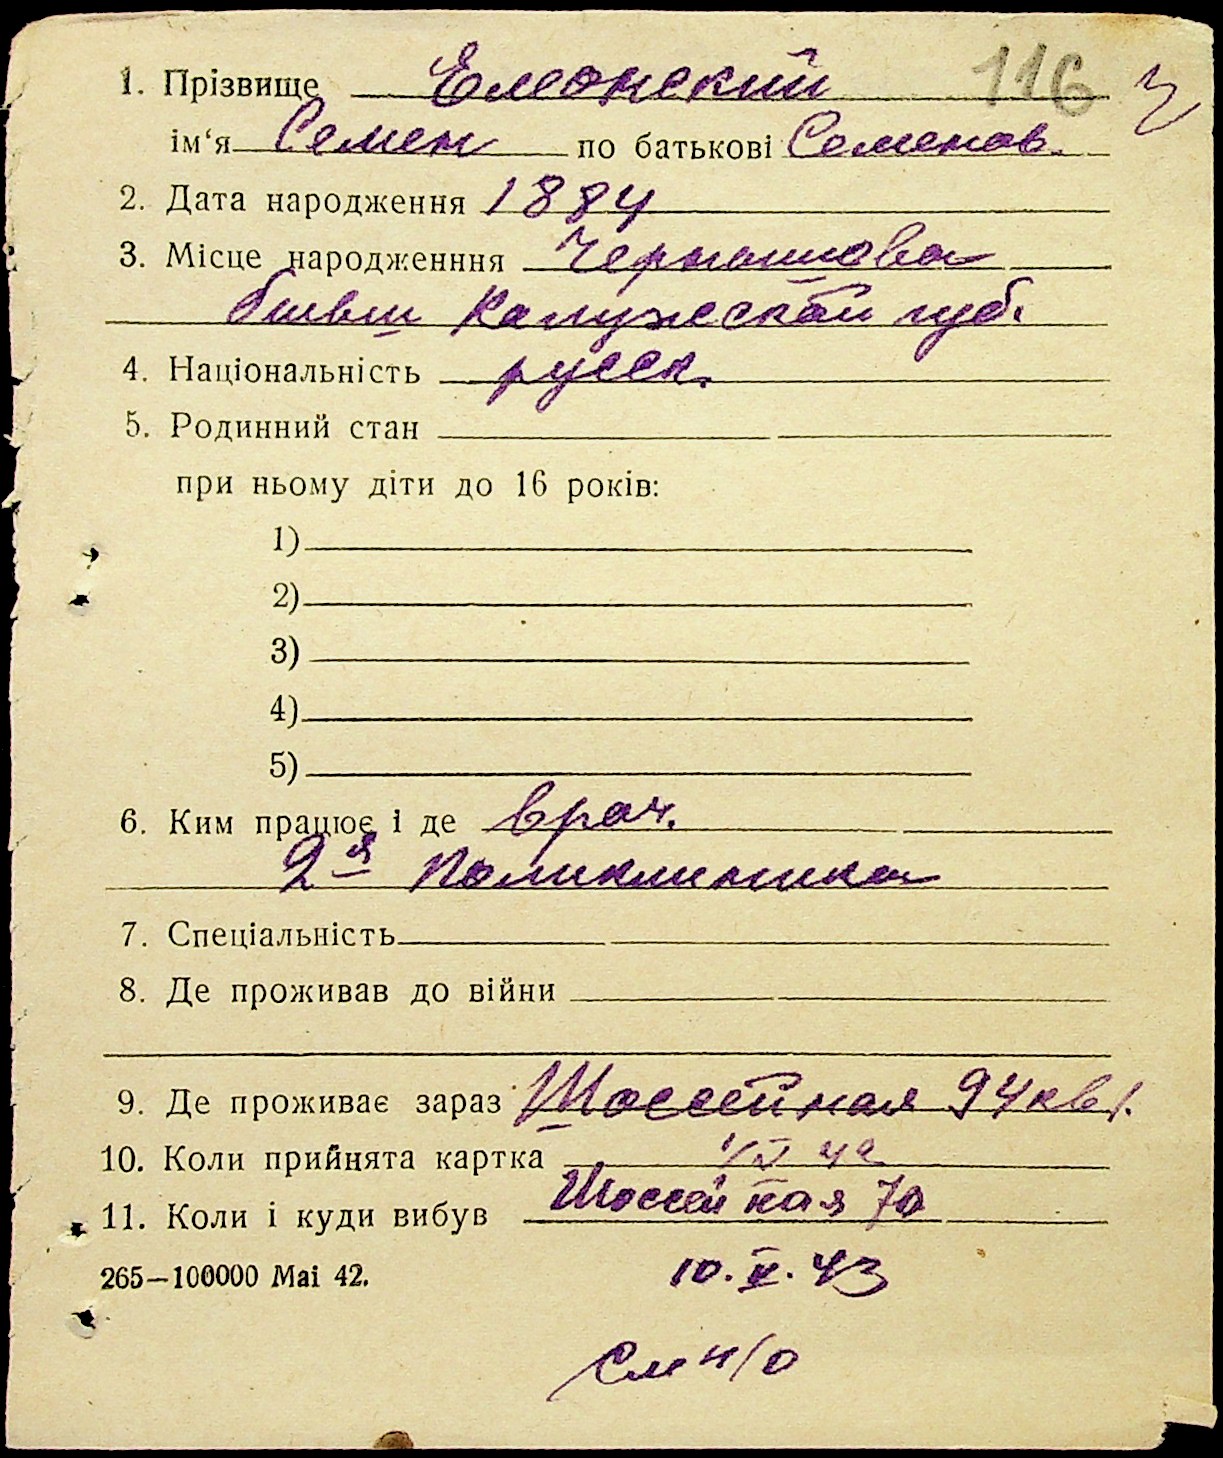 116 3
1. Прізвище Елеонский
ім‘я Семен по батькові Семенов.
2. Дата народження 1884
3. Місце народженння Чернышова
бывш Калужской губ.
4. Національність русск.
5. Родинний стан
при ньому діти до 16 років:
1)
2)
3)
4)
5)
6. Ким працює і де врач.
2я Поликлиника
7. Спеціальність
8. Де проживав до війни
9. Де проживає зараз Шоссейная 94 кв 1.
10. Коли прийнята картка 42
11. Коли і куди вибув Шоссейная 70
265—100000 Mai 42.
10. V. 43
См н/о